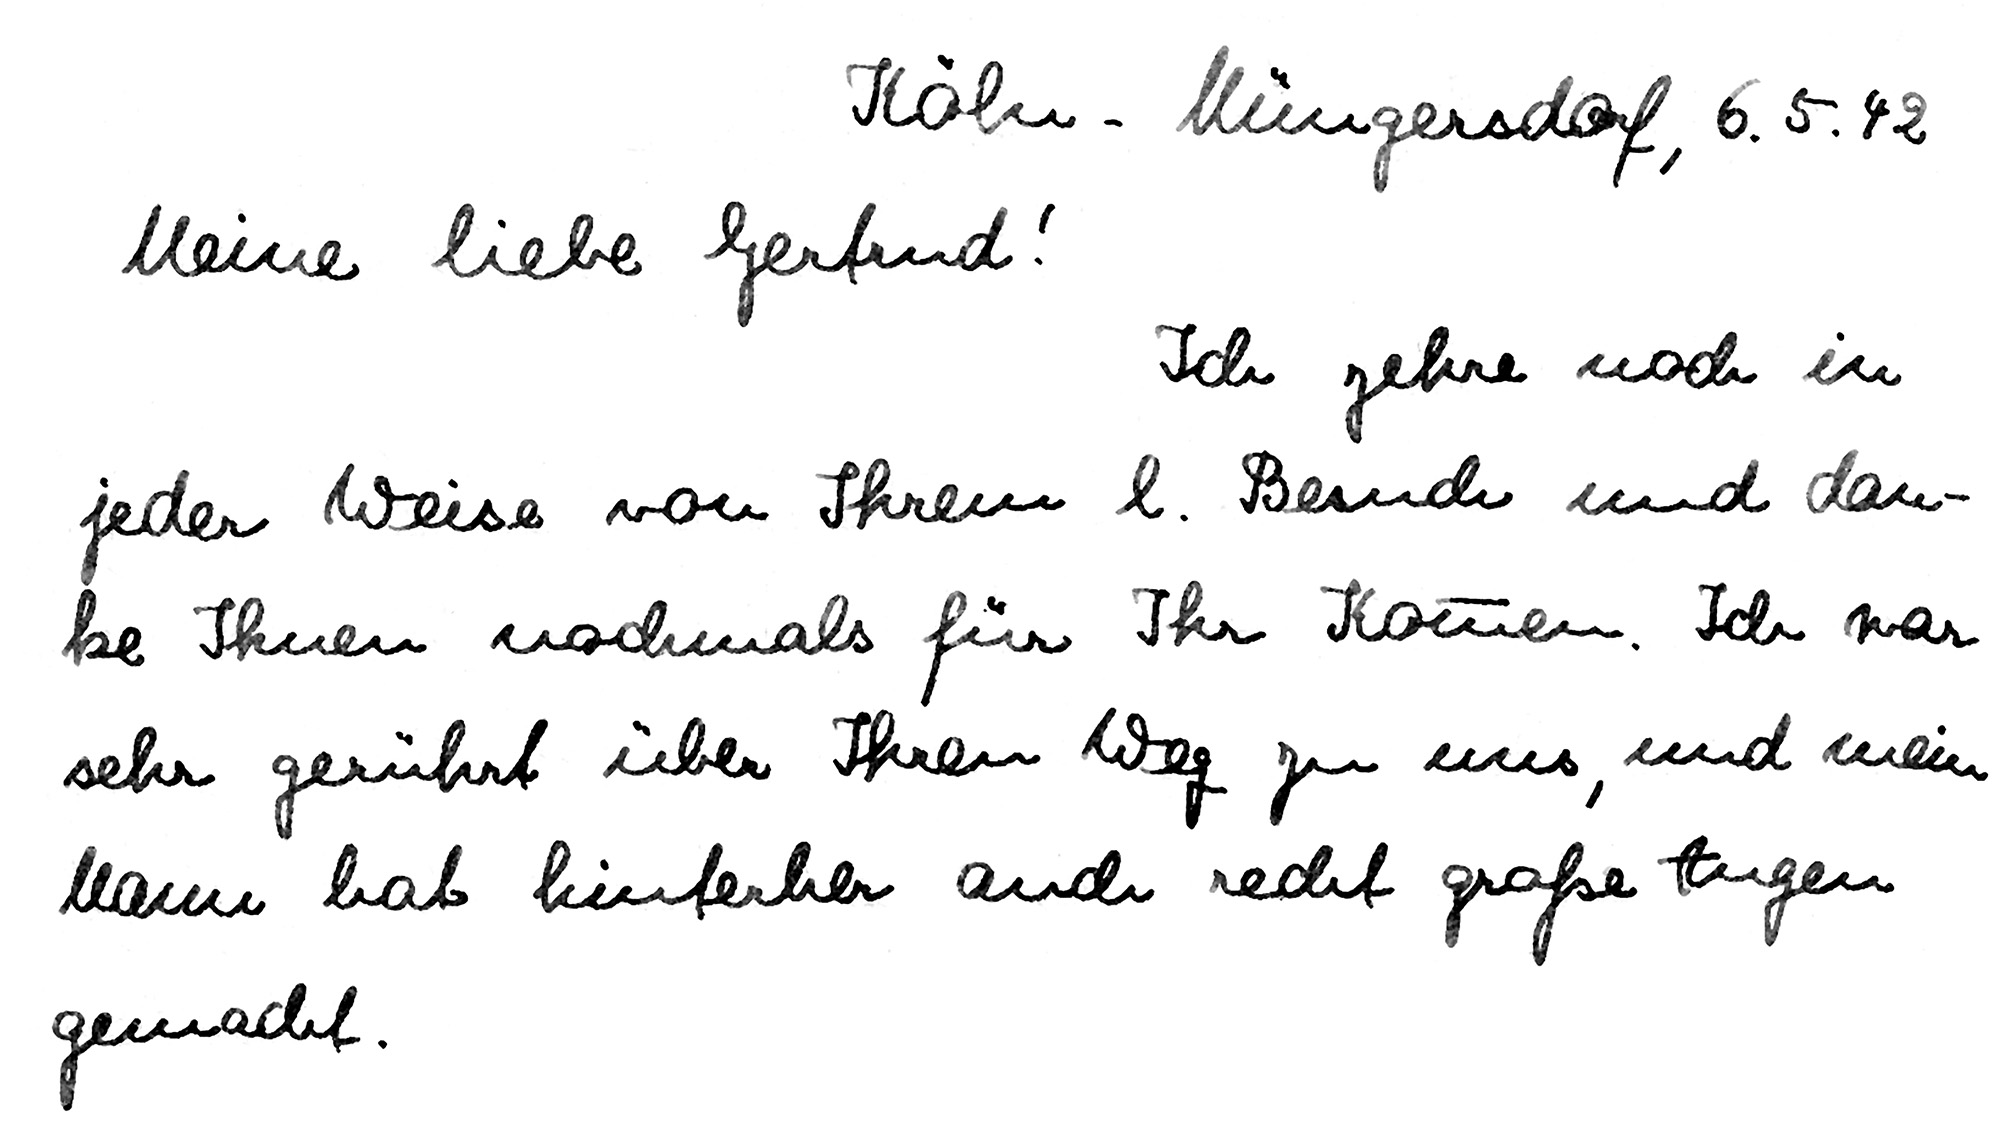 Köln - Müngersdorf, 6.5.42
Meine liebe Gertrud!
Ich zehre noch in
jeder Weise von Ihrem l. Besuch und dan-
ke Ihnen nochmals für Ihr Kom̅en. Ich war
sehr gerührt über Ihren Weg zu uns, und mein
Mann hat hinterher auch recht große Augen
gemacht.